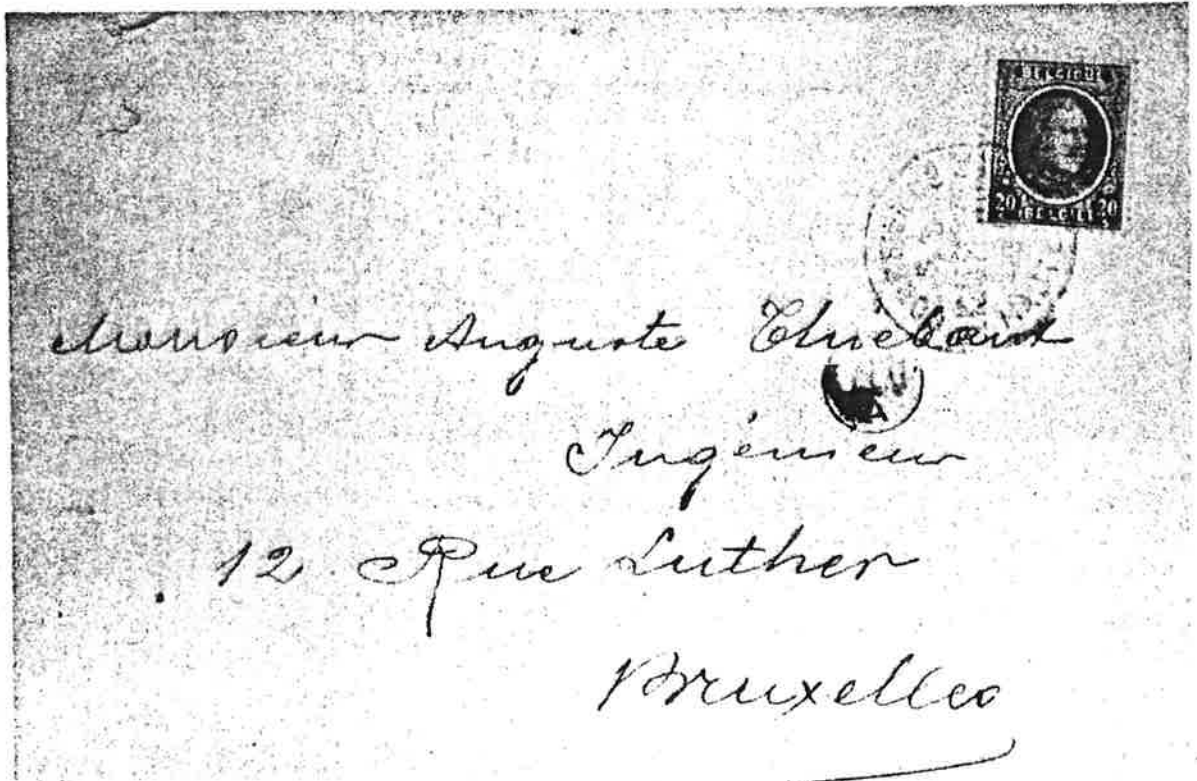 BELGIQUE
20 BELGIË 20
Monsieur Auguste Thiebaut
Ingénieur
12 Rue Luther
Bruxelles